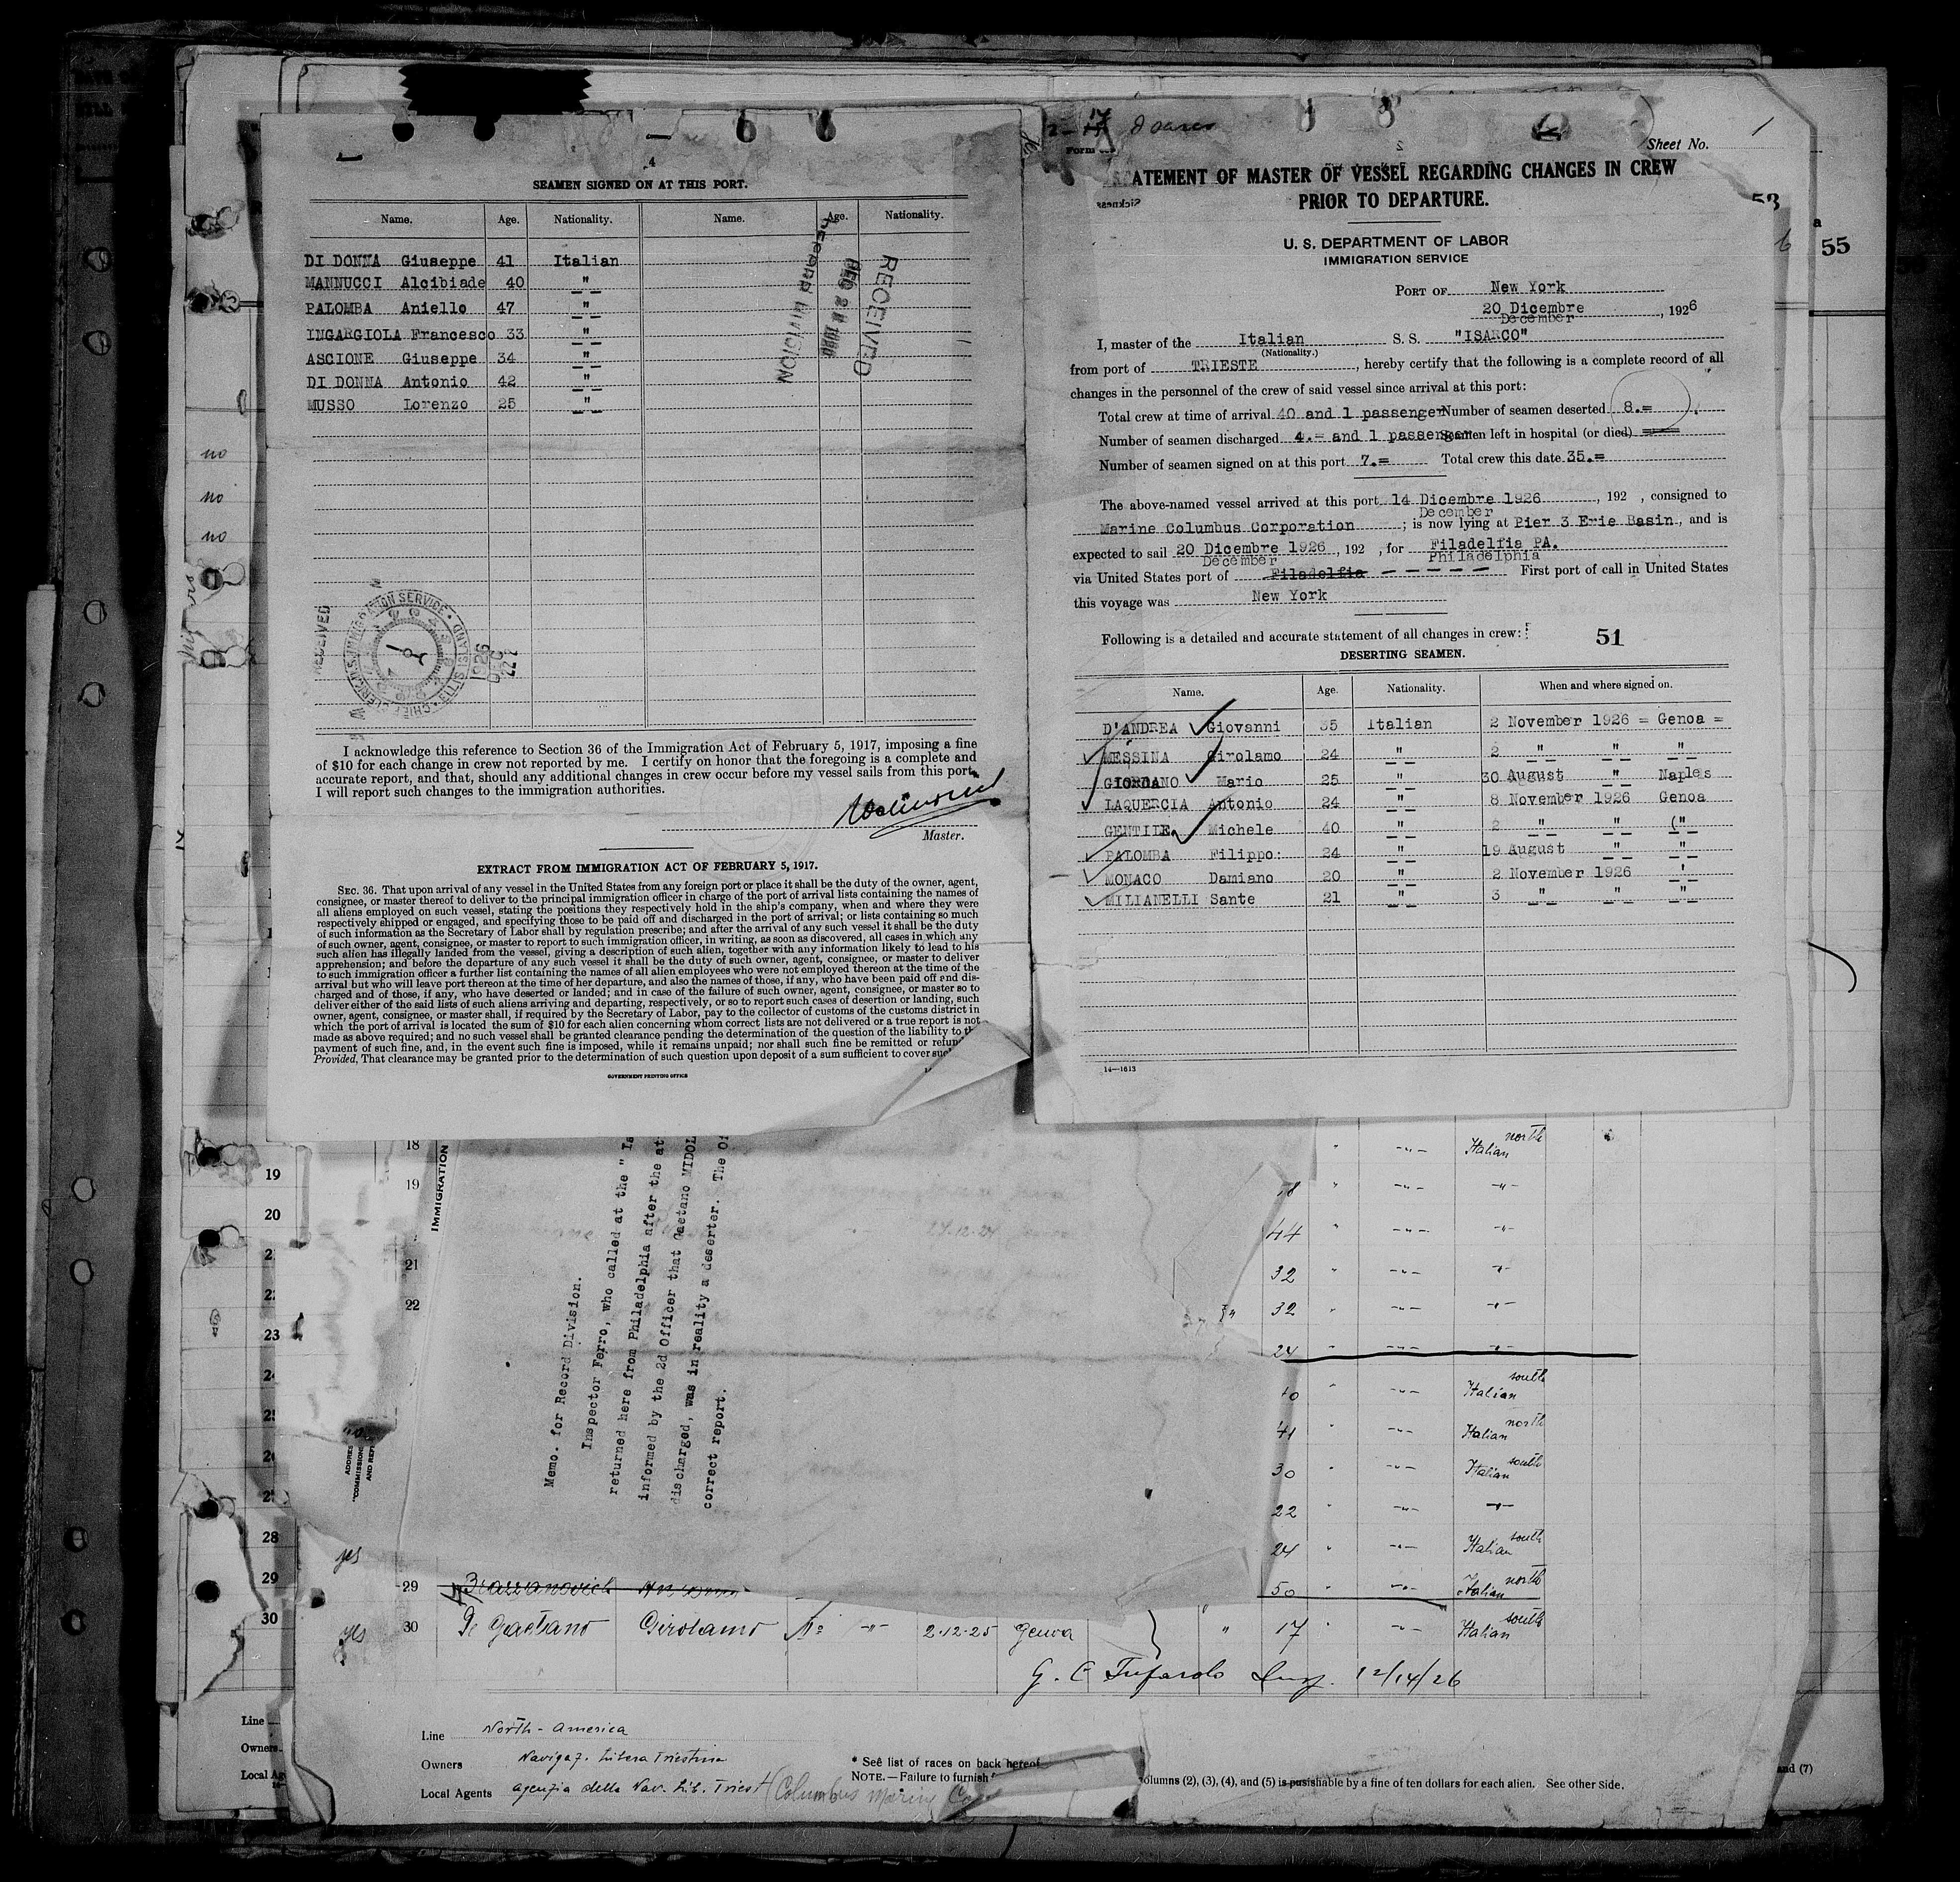 4
SEAMEN SIGNED ON AT THIS PORT.
Name. Age. Nationality. Name. Age. Nationality.
DI DONNA Giuseppe 41 Italian
MANNUCCI Alcibiade 40 "
PALOMBA Aniello 47 "
INGARGIOLA Francesco 33 "
ASCIONE Giuseppe 34 "
DI DONNA Antonio 42 "
MUSSO Lorenzo 25 "
RECEIVED
RECORD DIVISION
no
no
no
RECEIVED
1926
DEC
22
I acknowledge this reference to Section 36 of the Immigration Act of February 5, 1917, imposing a fine
of $10 for each change in crew not reported by me. I certify on honor that the foregoing is a complete and
accurate report, and that, should any additional changes in crew occur before my vessel sails from this port,
I will report such changes to the immigration authorities.
Master.
EXTRACT FROM IMMIGRATION ACT OF FEBRUARY 5, 1917.
SEC. 36. That upon arrival of any vessel in the United States from any foreign port or place it shall be the duty of the owner, agent,
consignee, or master thereof to deliver to the principal immigration officer in charge of the port of arrival lists containing the names of
all aliens employed on such vessel, stating the positions they respectively hold in the ship's company, when and where they were
respectively shipped or engaged, and specifying those to be paid off and discharged in the port of arrival; or lists containing so much
of such information as the Secretary of Labor shall by regulation prescribe; and after the arrival of any such vessel it shall be the duty
of such owner, agent, consignee, or master to report to such immigration officer, in writing, as soon as discovered, all cases in which any
such alien has illegally landed from the vessel, giving a description of such alien, together with any information likely to lead to his
apprehension; and before the departure of any such vessel it shall be the duty of such owner, agent, consignee, or master to deliver
to such immigration officer a further list containing the names of all alien employees who were not employed thereon at the time of the
arrival but who will leave port thereon at the time of her departure, and also the names of those, if any, who have been paid off and dis-
charged and of those, if any, who have deserted or landed; and in case of the failure of such owner, agent, consignee, or master so to
deliver either of the said lists of such aliens arriving and departing, respectively, or so to report such cases of desertion or landing, such
owner, agent, consignee, or master shall, if required by the Secretary of Labor, pay to the collector of customs of the customs district in
which the port of arrival is located the sum of $10 for each alien concerning whom correct lists are not delivered or a true report is not
made as above required; and no such vessel shall be granted clearance pending the determination of the question of the liability to
payment of such fine, and, in the event such fine is imposed, while it remains unpaid; nor shall such fine be remitted or
Provided, That clearance may be granted prior to the determination of such question upon deposit of a sum sufficient to cover
GOVERNMENT PRINTING OFFICE
Sheet No. 1
ATEMENT OF MASTER OF VESSEL REGARDING CHANGES IN CREW
PRIOR TO DEPARTURE.
U. S. DEPARTMENT OF LABOR
IMMIGRATION SERVICE
PORT OF New York
20 Dicembre, 1926
December
I, master of the Italian S. S. "ISARCO"
(Nationality.)
from port of TRIESTE, hereby certify that the following is a complete record of all
changes in the personnel of the crew of said vessel since arrival at this port:
Total crew at time of arrival 40 and 1 passenger Number of seamen deserted 8.=
Number of seamen discharged 4.- and 1 passenger Seamen left in hospital (or died)
Number of seamen signed on at this port 7.= Total crew this date 35.=
The above-named vessel arrived at this port 14 Dicembre 1926, 192 , consigned to
December
Marine Columbus Corporation; is now lying at Pier 3 Erie Basin, and is
expected to sail 20 Dicembre 1926, 192 , for Filadelfia PA.
December Philadelphia
via United States port of Filadelfia First port of call in United States
this voyage was New York
Following is a detailed and accurate statement of all changes in crew:
51
DESERTING SEAMEN.
Name. Age. Nationality. When and where signed on.
D'ANDREA Giovanni 35 Italian 2 November 1926 = Genoa =
MESSINA Girolamo 24 " 2 " " "
GIORDANO Mario 25 " 30 August " Naples
LAQUERCIA Antonio 24 " 8 November 1926 Genoa
GENTILE Michele 40 " 2 " " ("
PALOMBA Filippo: 24 " 19 August " "
MONACO Damiano 20 " 2 November 1926 "
MILIANELLI Sante 21 " 3 " " "
14—1613
53
55
IMMIGRATION
Memo. for Record Division.
Inspector Ferro, who called at the "
returned here from Philadelphia after the
informed by the 2d Officer that Gaetano
discharged, was in reality a deserter. The
correct report.
18 " Italian north
19 "
44 "
21 32 "
22 32 "
24 "
Italian south
41 Italian north
30 Italian south
22 "
24 Italian south
yes 29 50 Italian north
yes 30 Girolamo 2-12-25 Genoa " 17 " Italian south
12/14/26
19
20
23
28
29
30
Line North-America
Owners Navigaz. Libera Triestina
Local Agents Agenzia della Nav. Lib. Triest (Columbus Marine
* See list of races on back hereof.
NOTE.—Failure to furnish
columns (2), (3), (4), and (5) is punishable by a fine of ten dollars for each alien. See other side.
and (7)
Line
Owners